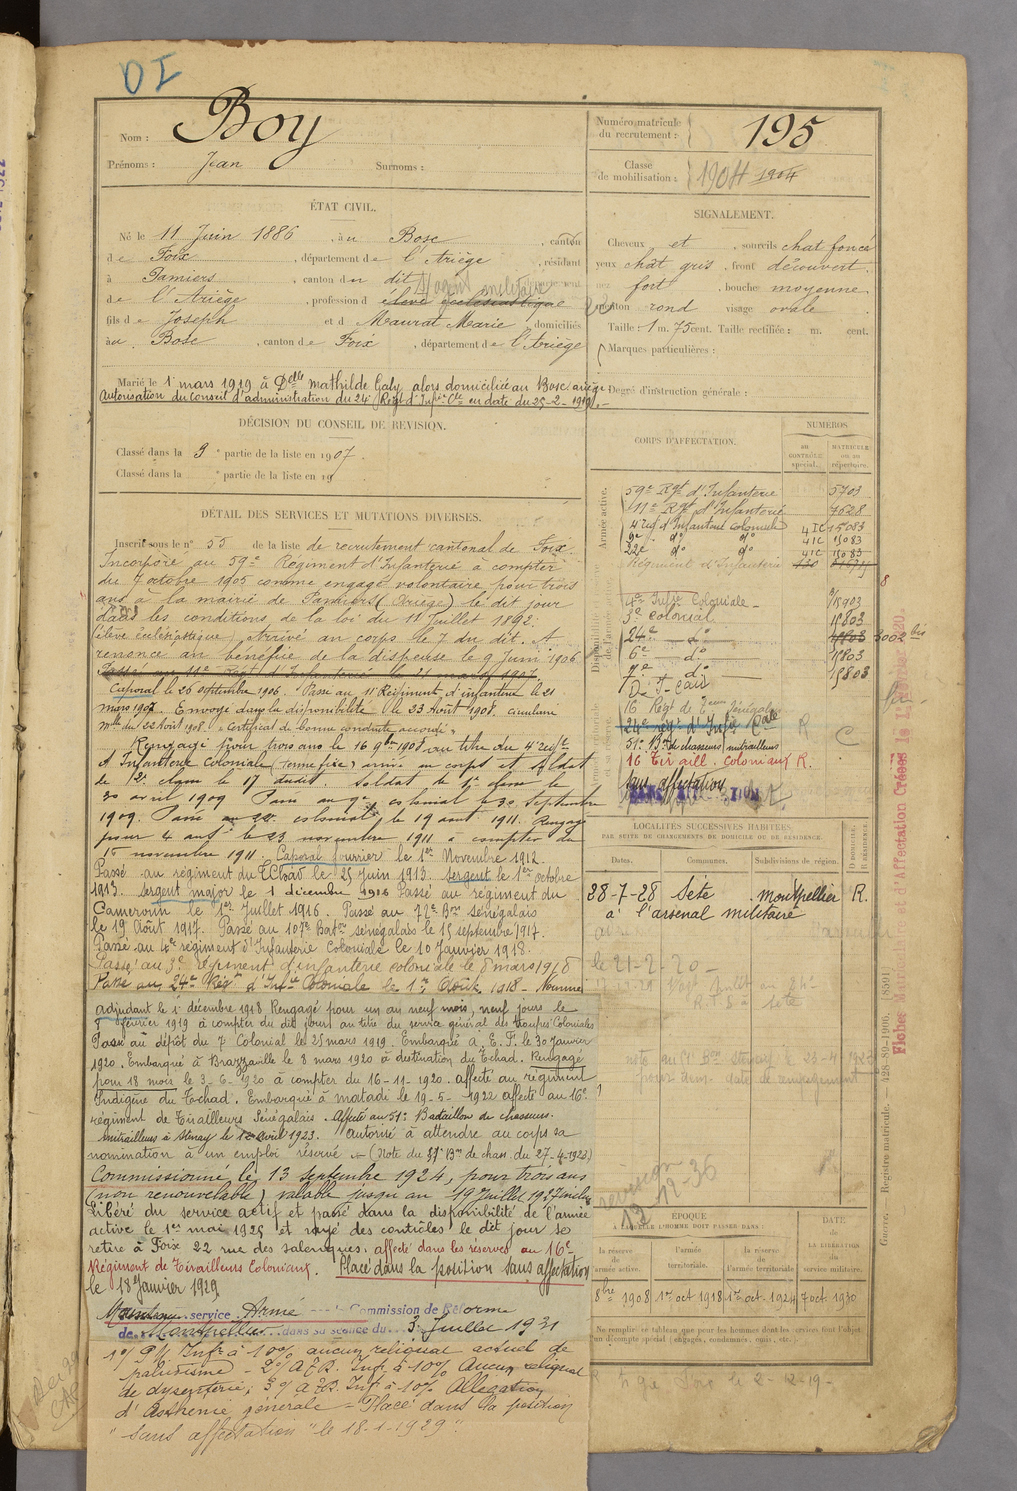 10
Nom : Boy
Prénoms : Jean Surnoms :
Numéro matricule du recrutement : 195
Classe de mobilisation : 1904 1904
ÉTAT CIVIL.
Né le 11 Juin 1886, à u Bosc, canton
de Foix, département de l'Ariège, résidant
à Pamiers, canton du dit
de l'Ariège, profession d élève ecclésiastique
fils de Joseph et d Maurat Marie domiciliés
à u Bosc, canton de Foix, département de l'Ariège
Marié le 1er mars 1919 à Delle Mathilde Galy alors domiciliée au Bosc ariège
autorisation du Conseil d'administration du 24e Régt d'Infie Cle en date du 25-2-1919.-
SIGNALEMENT.
Cheveux et , sourcils chat foncé
yeux chât gris, front découvert
nez fort, bouche moyenne
menton rond visage ovale
Taille : 1 m. 75 cent. Taille rectifiée : m. cent.
Marques particulières :
Degré d'instruction générale :
DÉCISION DU CONSEIL DE REVISION.
Classé dans la 3e partie de la liste en 1907.
Classé dans la e partie de la liste en 19
DÉTAIL DES SERVICES ET MUTATIONS DIVERSES.
Inscrit sous le n° 55 de la liste de recrutement cantonal de Foix.
Incorporé au 59e Régiment d'Infanterie à compter
du 7 octobre 1905 comme engagé volontaire pour trois
ans à la mairie de Pamiers (Ariège) le dit jour
dans les conditions de la loi du 11 Juillet 1892.
(élève écclésiastique) Arrivé au corps le 7 du dit. A
renoncé au bénéfice de la dispense le 9 Juin 1906
Passé au 11e Régt d'Infanterie le 21 mars 1907.
Caporal le 26 septembre 1906. Passé au 11e Régiment d'infanterie le 21
mars 1907. Envoyé dans la disponibilité le 23 Août 1908. circulaire
Mlle du 22 Août 1908. "Certificat de bonne conduite accordé"
Rengagé pour trois ans le 16 9bre 1908 au titre du 4e régt
d'Infanterie Coloniale (Terme fixe) arrivé au corps et soldat
de 2e classe le 17 dudit. Soldat de 1e classe le
30 avril 1909 Passé au 9e colonial le 30 Septembre
1909. Passé au 22e colonial le 19 aout 1911. Rengagé
pour 4 ans le 23 novembre 1911 à compter du
16 novembre 1911. Caporal fourrier le 1er Novembre 1912.
Passé au régiment du Tchad le 25 Juin 1913. Sergent le 1er octobre
1913. Sergent major le 1 décembre 1916 Passé au régiment du
Cameroun le 1er Juillet 1916. Passé au 72e Bon sénégalais
le 19 Août 1917. Passé au 107e Baton sénégalais le 15 septembre 1917.
Passé au 4e régiment d'Infanterie Coloniale le 10 Janvier 1918.
Passé au 3e régiment d'infanterie coloniale le 8 mars 1918
Passé au 24e Régt d'Infie Coloniale le 1er Août 1918 - Nommé
adjudant le 1 décembre 1918 Rengagé pour un an neuf mois, neuf jours le
7 février 1919 à compter du dit jour au titre du service général des troupes Coloniales
Passé au dépôt du 7 Colonial le 25 mars 1919. Embarqué A. E. F. le 30 Janvier
1920. Embarqué à Brazzaville le 8 mars 1920 à destination du Tchad. Rengagé
pour 18 mois le 3-6-1920 à compter du 16-11-1920. affecté au régiment
Indigène du Tchad. Embarqué à matadi le 19-5-1922 affecté au 16e
régiment de Tirailleurs Sénégalais. Affecté au 51e Bataillon de chasseurs
mitrailleurs à Stenay le 12 avril 1923. autorisé à attendre au corps sa
nomination à un emploi réservé (Note du 51e Bon de chass. du 27-4-1923)
Commissionné le 13 septembre 1924, pour trois ans
(non renouvelable) valable jusqu'au 19 Juillet 1927 inclus
Libéré du service actif et passé dans la disponibilité de l'armée
active le 1er mai 1925 et rayé des contrôles le dit jour se
retire à Foix 22 rue des salenques. affecté dans les réserves au 16e
Régiment de Tirailleurs Coloniaux. Placé dans la position sans affectation
le 18 Janvier 1929
Maintenu service Armé Commission de Réforme
de Montpellier dans sa séance du 3 Juillet 1931
1°/ P% Infr à 10% aucun reliquat actuel de
paludisme - 2°/ Infr à 10% Aucun reliquat
de dysenterie; 3°/ Inf à 10% Allegation
d'Asthénie générale - Placé dans la position
"sans affectation" le 18-1-1929".
CORPS D'AFFECTATION.
NUMÉROS
AU CONTRÔLE spécial.
MATRICULE ou au répertoire.
Armée active.
59e Rgt d'Infanterie 5703
11e Rgt d'Infanterie 7628
4e régt d'Infanterie coloniale 4 IC 15083
9e do do 4 IC 15083
22e do do 4 IC 15083
Régiment d'Infanterie
4e Infie Coloniale - 903
3e Colonial 15803
24e do 3002 bis
6e do 15803
7e do 15803
D. I. Tchad
16 Régt de Tirrs Sénégalais
24e régt d'Infie Cale
51e Bon de chasseurs mitrailleurs
16 Tiraill. Coloniaux R.
Sans affectation
SANS AFFECTATION
R
C
Fiches Matricule et d'Affectation Créées le 12 Février 1920.
LOCALITÉS SUCCESSIVES HABITÉES
PAR SUITE DE CHANGEMENTS DE DOMICILE OU DE RÉSIDENCE.
Dates. Communes. Subdivisions de région. D DOMICILE. R RÉSIDENCE.
28-7-28 Sète Montpellier R.
à l'arsenal militaire
le 21-2-20-
revision
13-12-36
ÉPOQUE
À LAQUELLE L'HOMME DOIT PASSER DANS :
DATE DE LA LIBÉRATION du service militaire.
la réserve de l'armée active. l'armée territoriale. la réserve de l'armée territoriale
8bre 1908 1er oct 1918 1er oct. 1924 7 oct. 1930
Ne remplir ce tableau que pour les hommes dont les services font l'objet
un décompte spécial (engagés, condamnés, omis, etc.).
Guerre. Registre matricule. — 428-89-1906. [8591]